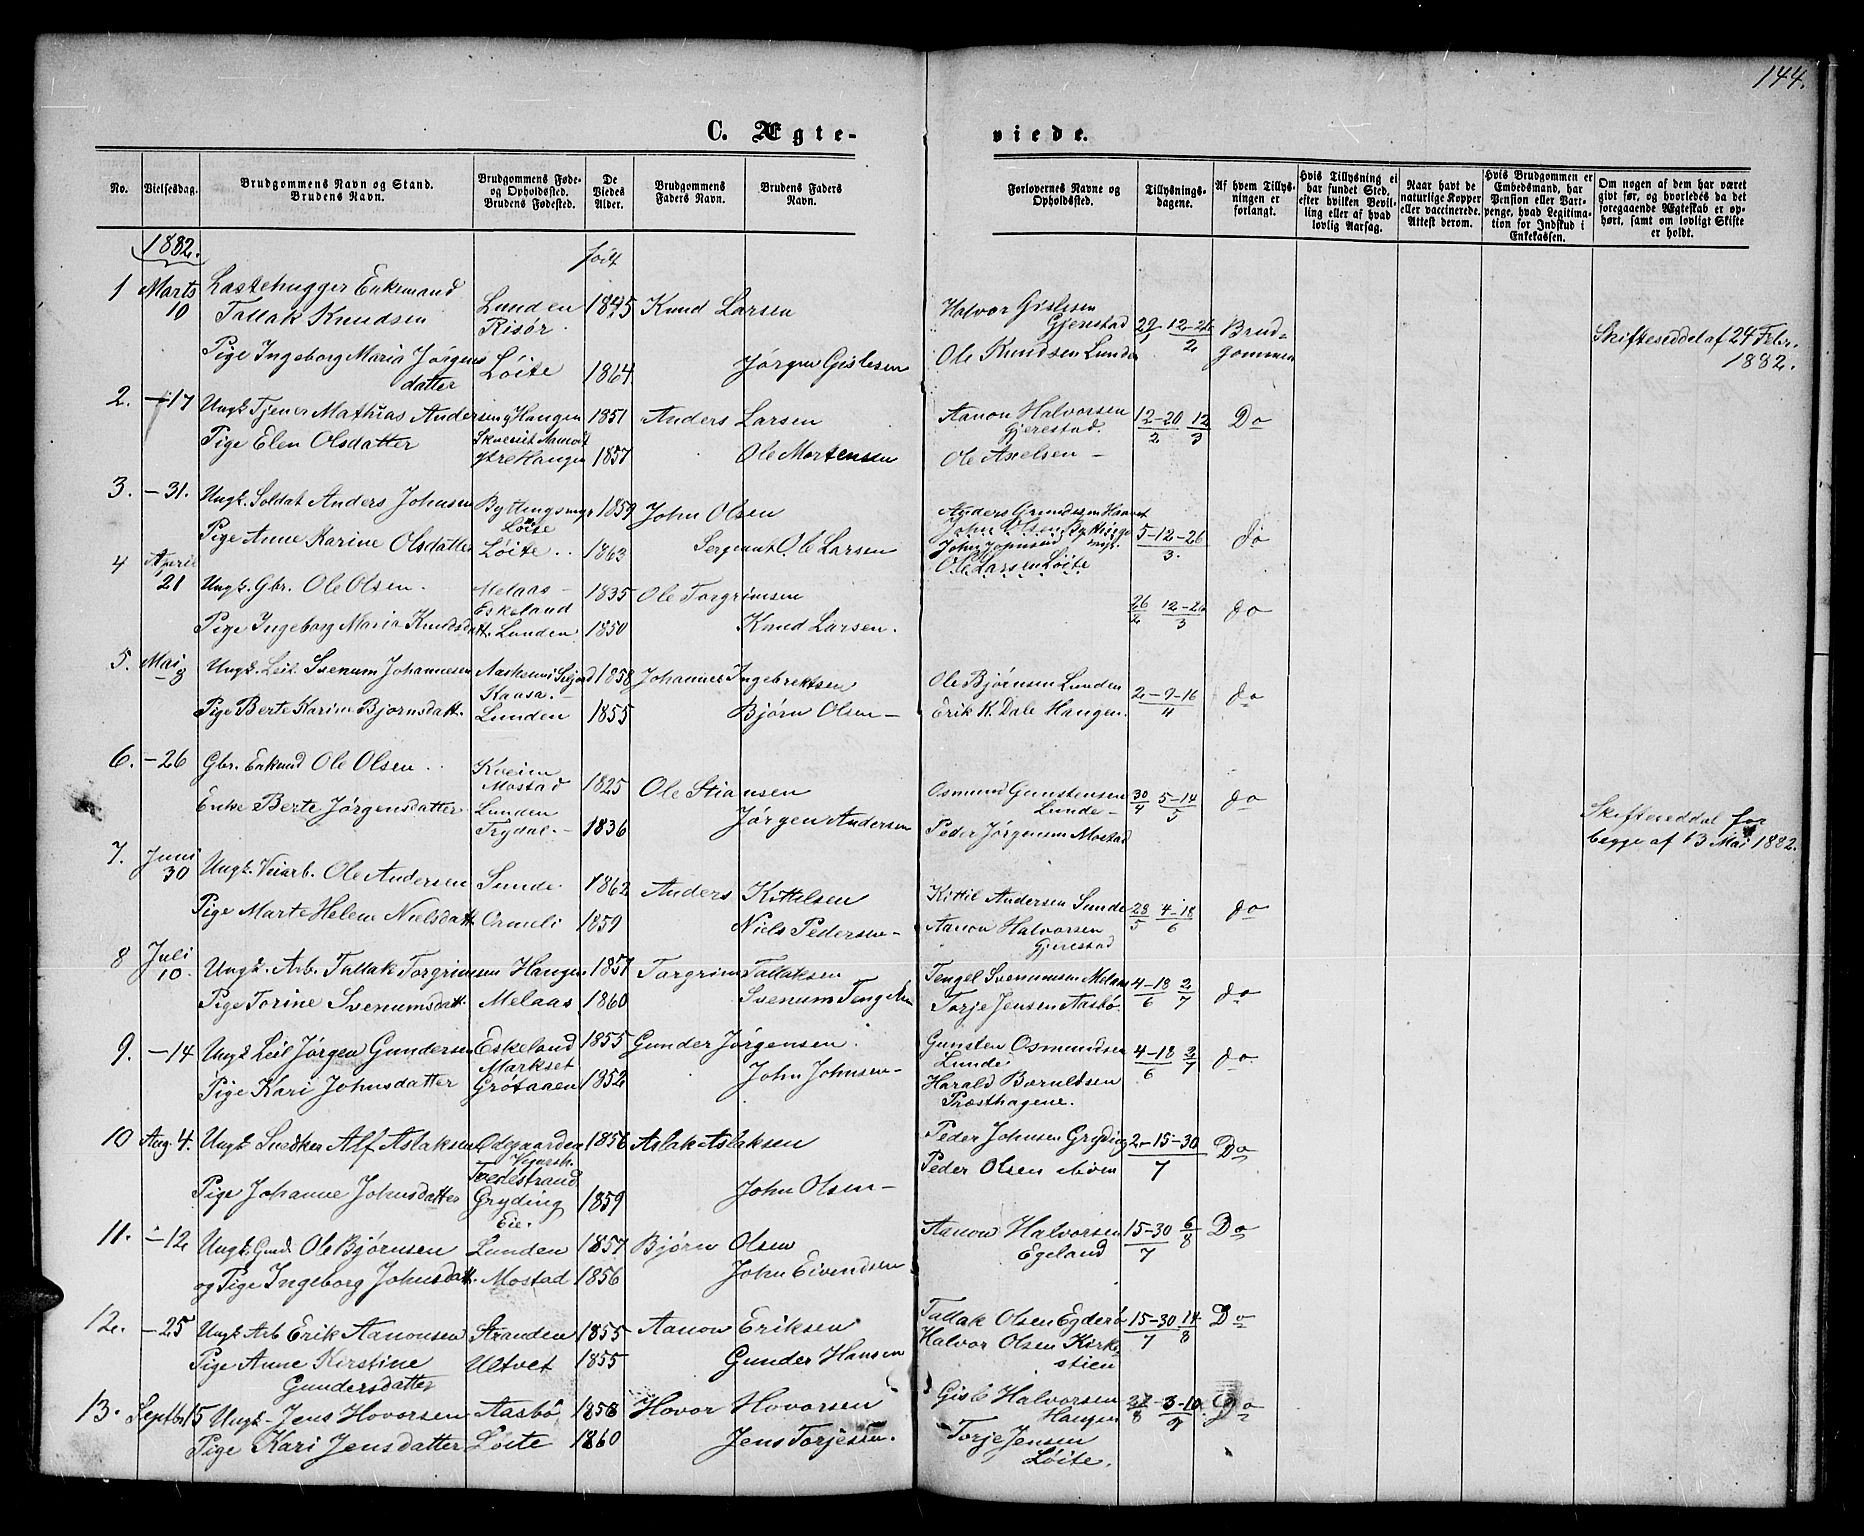 144.
C. Ægte-
viede.
No.
Vielsesdag.
Brudgommens Navn og Stand.
Brudens Navn.
Brudgommens Føde-
og Opholdssted.
Brudens Fødested.
De
Viedes
Alder.
Brudgommens
Faders Navn.
Brudens Faders
Navn.
Forlovernes Navne og
Opholdssted.
Tillysnings-
dagene.
Af hvem Tillys-
ningen er
forlangt.
Hvis Tillysning ei
har fundet Sted,
efter hvilken Bevil-
ling eller af hvad
lovlig Aarsag.
Naar havt de
naturlige Kopper
eller vaccinerede.
Attest derom.
Hvis Brudgommen er
Embedsmand, har
Pension eller Vart-
penge, hvad Legitima-
tion for Indskud i
Enkekassen.
Om nogen af dem har været
givt før, og hvorledes da det
foregaaende Ægteskab er op-
hørt, samt om lovligt Skifte
er holdt.
1882.
født
1 Marts 10
Lastehugger Enkemand
Tallak Knudsen
Lunden
Risør.
1845
Knud Larsen
Pige Ingeborg Maria Jørgens
datter
Løite
1864
Jørgen Gislesen
Halvor Gislesen
Gjerestad
Ole Knudsen Lunden
12-26
2
Brud-
gommen
Skifteseddel af 24 Febr.
1882.
2. -17
Ungk. Tjener Mathias Andersen
Haugen
1851
Anders Larsen
Pige Elen Olsdatter
ytre Haugen
1857
Ole Mortensen
Aanon Halvorsen
Gjerestad.
Ole Axelsen -
12-20 12
2 3
Do
3. -31.
Ungk. Soldat Anders Johnsen
Løite
1859
John Olsen
Pige Anne Karine Olsdatter
Løite
1863
Sergeant Ole Larsen
John Olsen
Ole Larsen Løite
5-12-26
3.
do
4 April 21
Ungk. Gbr. Ole Olsen.
Melaas -
Eskeland
1835
Ole Torgrimsen
Pige Ingeborg Maria Knudsdatt.
Lunden
1850
Knud Larsen.
26 12-26
2 3
do
5. Mai 3
Ungk. Leil. Svenum Johannesen
Kaasa. -
1858
Johannes Ingebrektsen
Pige Berte Karine Bjørnsdatt.
Lunden
1855
Bjørn Olsen -
Ole Bjørnsen Lunden
Erik K. Dale Haugen.
2-9-16
4
do
6. -26
Gbr. Enkemd Ole Olsen.
Kveim
Mostad
1825
Ole Stiansen
Enke Berte Jørgensdatter
Lunden
Trydal. -
1836
Jørgen Andersen
Osmund Gunstensen
Lunde -
Peder Jørgensen Mostad
30 5-14
4 5
do
Skifteseddel for
begge af 13 Mai 1882.
7. Juni 30
Ungk. Veiarb. Ole Andersen
Sunde.
1862
Anders Kittelsen
Pige Marte Helene Nielsdatt.
Ormeli
1859
Niels Pedersen -
Kittil Andersen Sunde
Aanon Halvorsen
Gjerestad
28 4-18
5 6
do
8 Juli 10.
Ungk. Arb. Tallak Torgrimsen
Haugen
1857
Torgrim Tallaksen
Pige Torine Svenumsdatt.
Melaas
1860
Svenum Tengelsen
Tengel Svenumsen Melaas
Torje Jensen Aasbø.
4-18 2
6 7
do
9. -14
Ungk. Leil Jørgen Gundersen
Eskeland
Markset
1855
Gunder Jørgensen.
Pige Kari Johnsdatter
Grøtaaen
1852
John Johnsen -
Gunsten Osmundsen
Lunde
Harald Berntsen
Præsthagene.
4-18 2
6 7
do
10 Aug. 4.
Ungk. Snedker Alf Aslaksen
Odegaarden
Tvedestrand
1856
Aslak Aslaksen
Pige Johanne Johnsdatter
Gryding
Eie.
1859
John Olsen -
Peder Johnsen Gryding
Peder Olsen Moen
2-15-30
7
Do
11. -12
Ungk. Ole Bjørnsen
Lunden
1857
Bjørn Olsen
og Pige Ingeborg Johnsdatt.
Mostad
1856
John Eivendsen
Aanon Halvorsen
Egeland
15-30 6
7 8
Do
12. -25
Ungk. Arb Erik Aanonsen
Stranden
1855
Aanon Eriksen
Pige Anne Kirstine
Gundersdatter
Ultvet
1855
Gunder Hansen
Tallak Olsen
Halvor Olsen Kirke
stien
15-30 14
7 8
Do
13. Septbr 15
Ungk. Jens Hovorsen
Aasbø
1858
Hovor Hovorsen
Pige Kari Jensdatter
Løite
1860
Jens Torjesen.
Gisle Halvorsen
Haugen
Torje Jensen
Løite.
27 3-10
8 9
Do